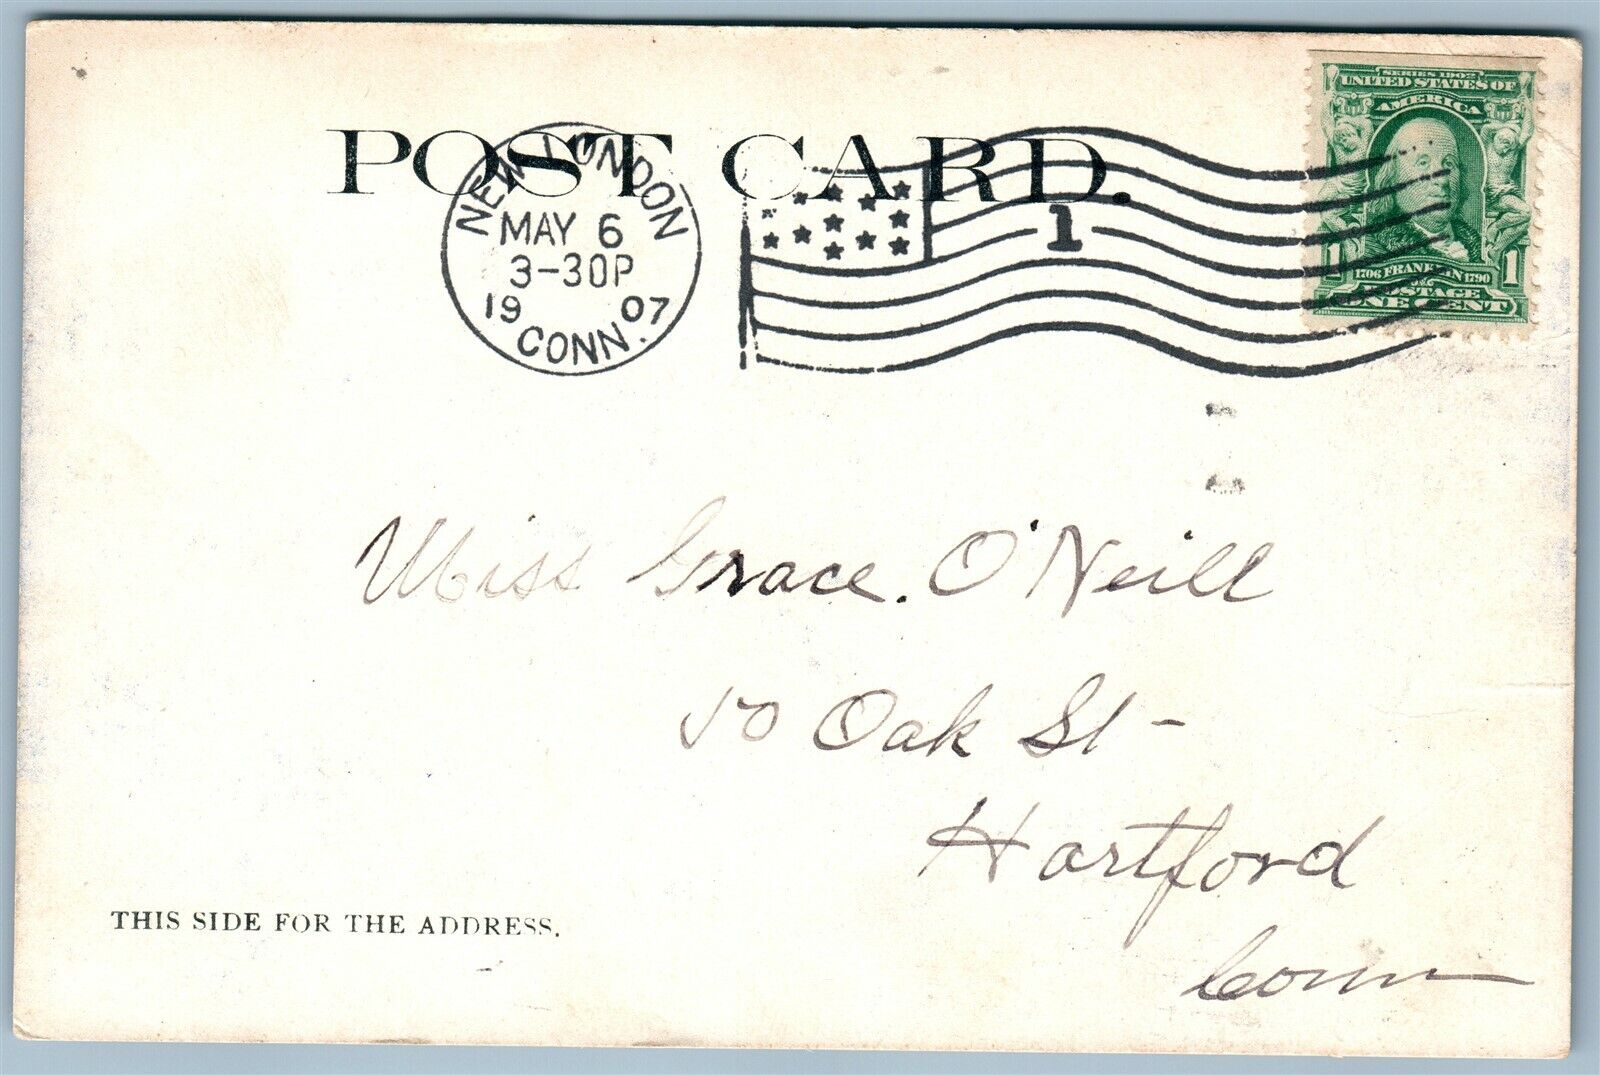 POST CARD.
NEW LONDON
MAY 6
3-30P
19 07
CONN.
1
SERIES 1902
UNITED STATES OF
AMERICA
1706 FRANKLIN 1790
POSTAGE
1 ONE CENT 1
Miss Grace. O'Neill
50 Oak St-
Hartford
Conn
THIS SIDE FOR THE ADDRESS.